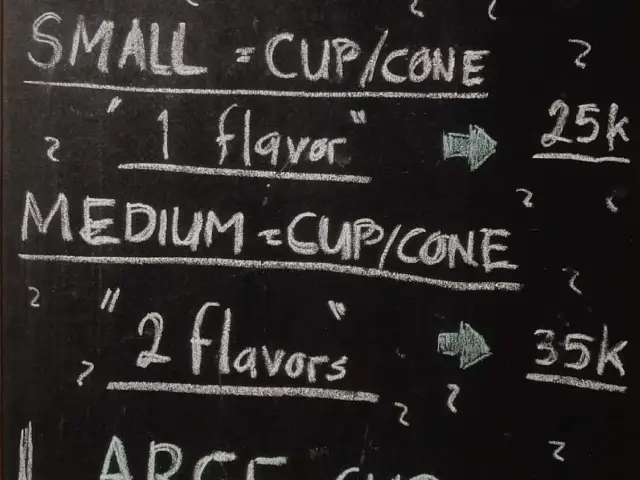 SMALL = CUP/CONE
"1 flavor" → 25k
MEDIUM = CUP/CONE
"2 flavors" → 35k
LARGE CUP